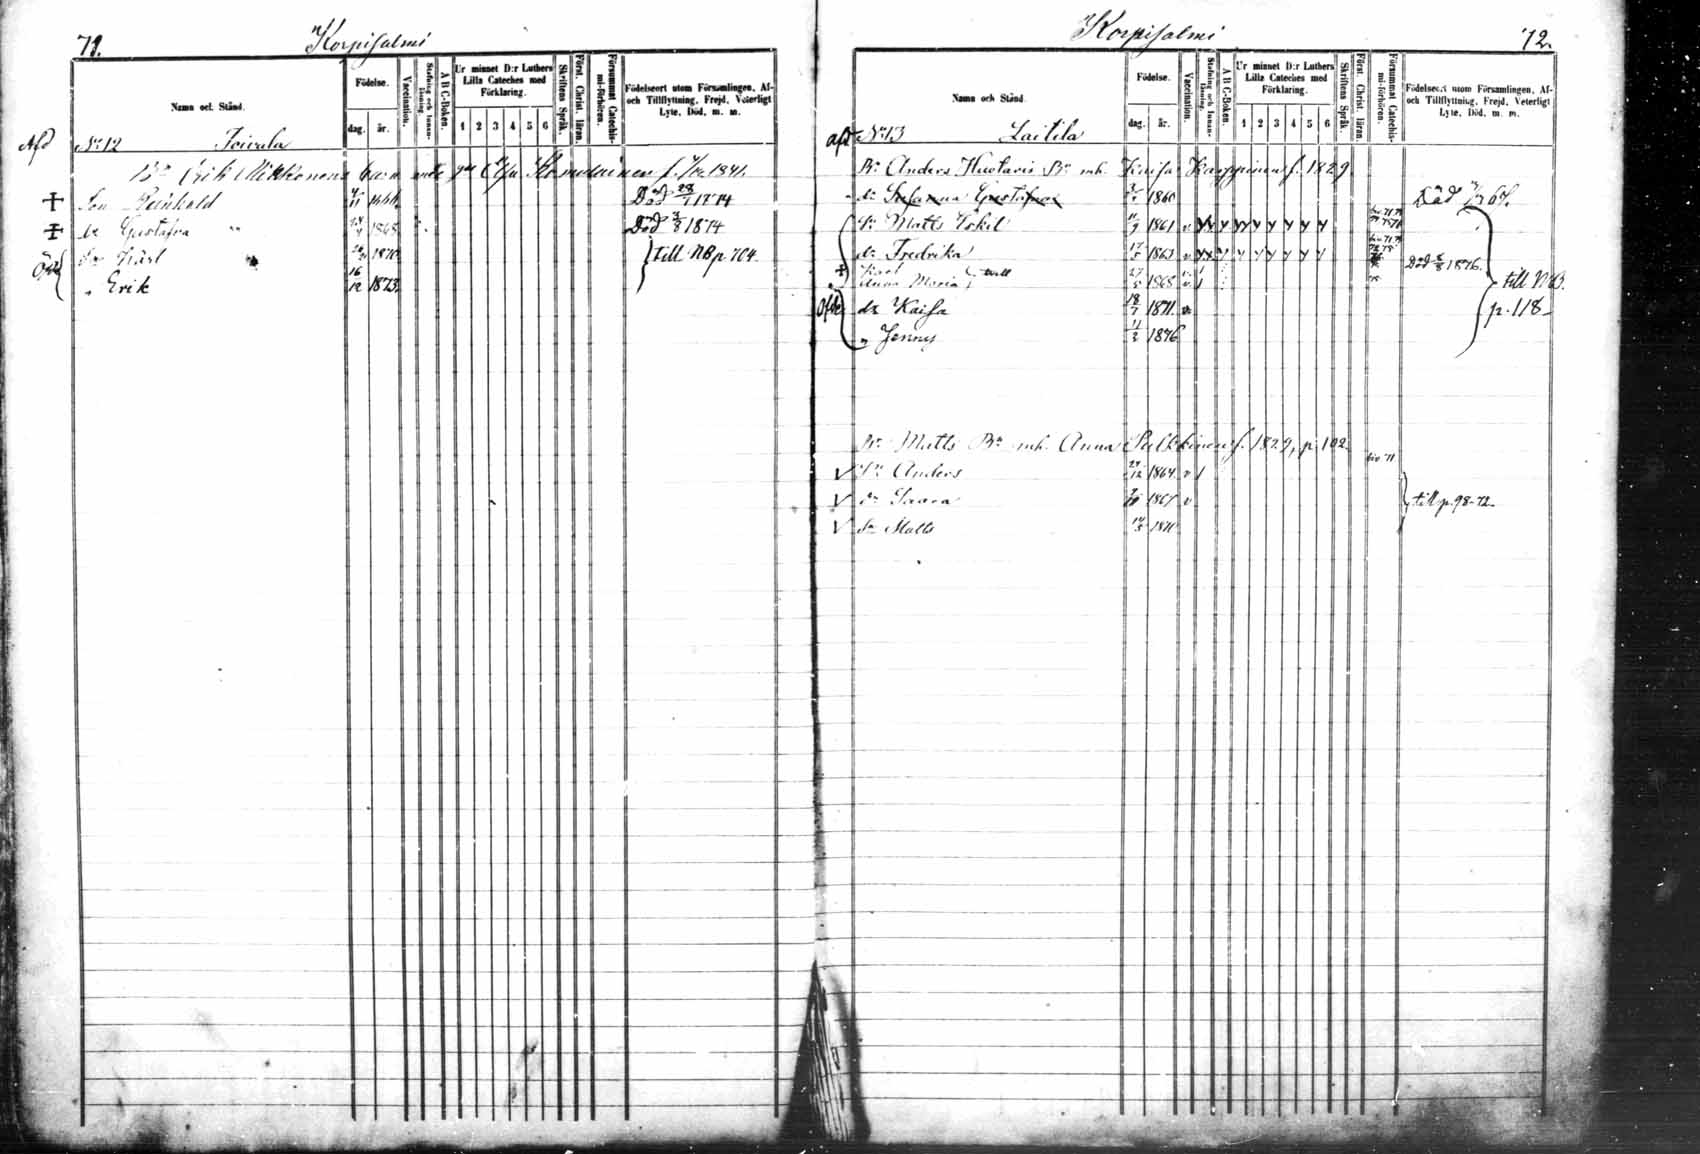 71.
Korpisalmi
Namn och Stånd.
Födelse.
dag. år.
Vaccination.
Stafning och Innan-läsning.
A B C-Boken.
Ur minnet D:r Luthers Lilla Cateches med Förklaring.
1 2 3 4 5 6
Skriftens Språk.
Först. Christ. läran.
Försummat Catechismi-förhören.
Födelseort utom Församlingen, Af- och Tillflyttning, Frejd, Veterligt Lyte, Död, m. m.
Afd No 12 Toivala
Erik Mikkonens barn med f. 1841.
Son Reinhold Död 28/7 1874
dr Gustafva 1868 Död 3/8 1874
Karl 1870
" Erik 16/12 1873
till NB p. 704.
Korpisalmi
72.
Namn och Stånd.
Födelse.
dag. år.
Vaccination.
Stafning och Innan-läsning.
A B C-Boken.
Ur minnet D:r Luthers Lilla Cateches med Förklaring.
1 2 3 4 5 6
Skriftens Språk.
Först. Christ. läran.
Försummat Catechismi-förhören.
Födelseort utom Församlingen, Af- och Tillflyttning, Frejd, Veterligt Lyte, Död, m. m.
afd No 13 Laitila
Anders Huotaris mh. Kaisa Karppinen f. 1829
dr Susanna Gustafva 1860 Död 67.
Sn Matts Eskil 11/9 1861 v
dr Fredrika 17/5 1863 v Död 8/8 1876.
Karl
Anna Maria tvill 27/5 1868 v
dr Kaisa 18/7 1871
" Jenny 11/2 1876
till NB. p. 118
Matts mh. Anna Pulkkinen f. 1829, p. 102
v Sn Anders 1864 v
v dr Saara 1867 v
v Sn Matts 1870
till p. 98-72.